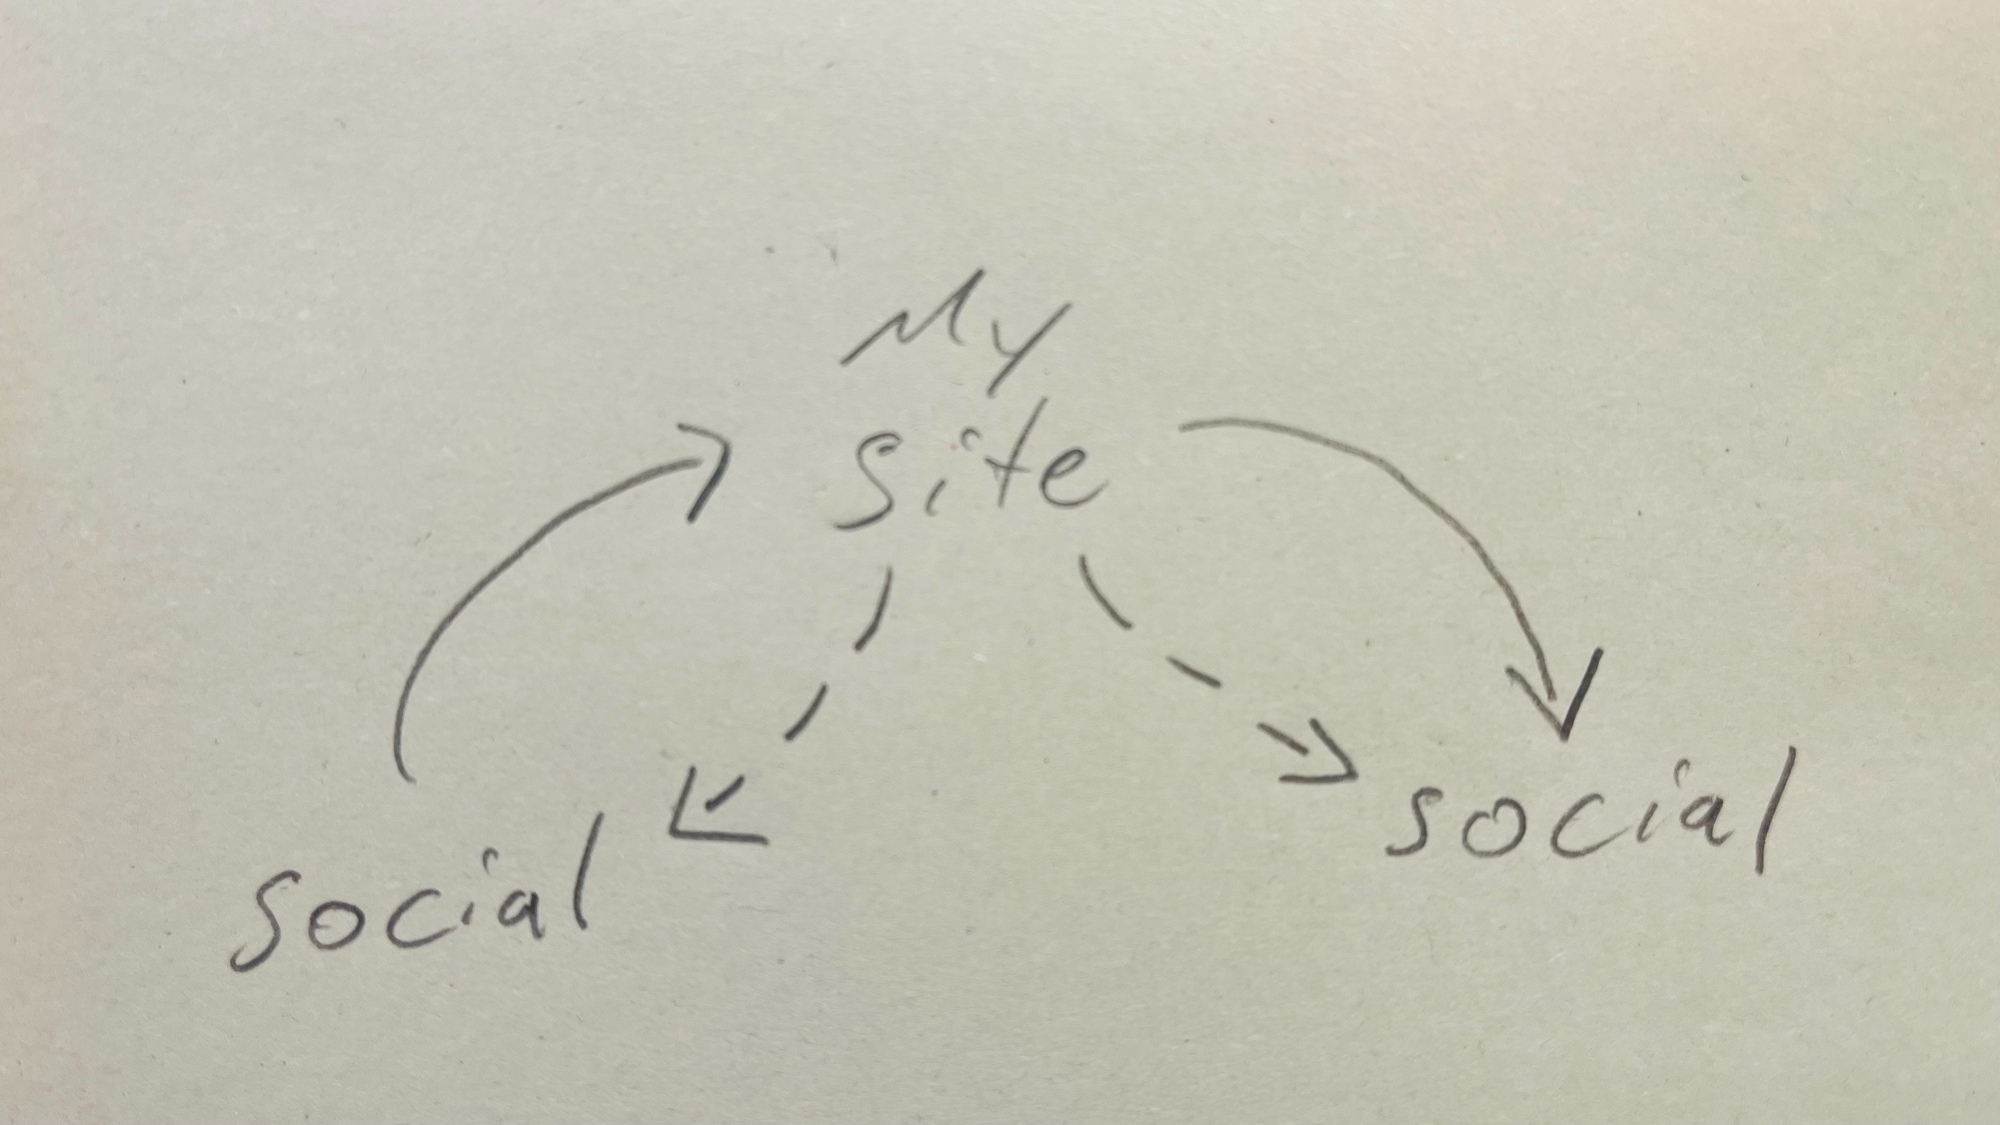 My
site
social
social